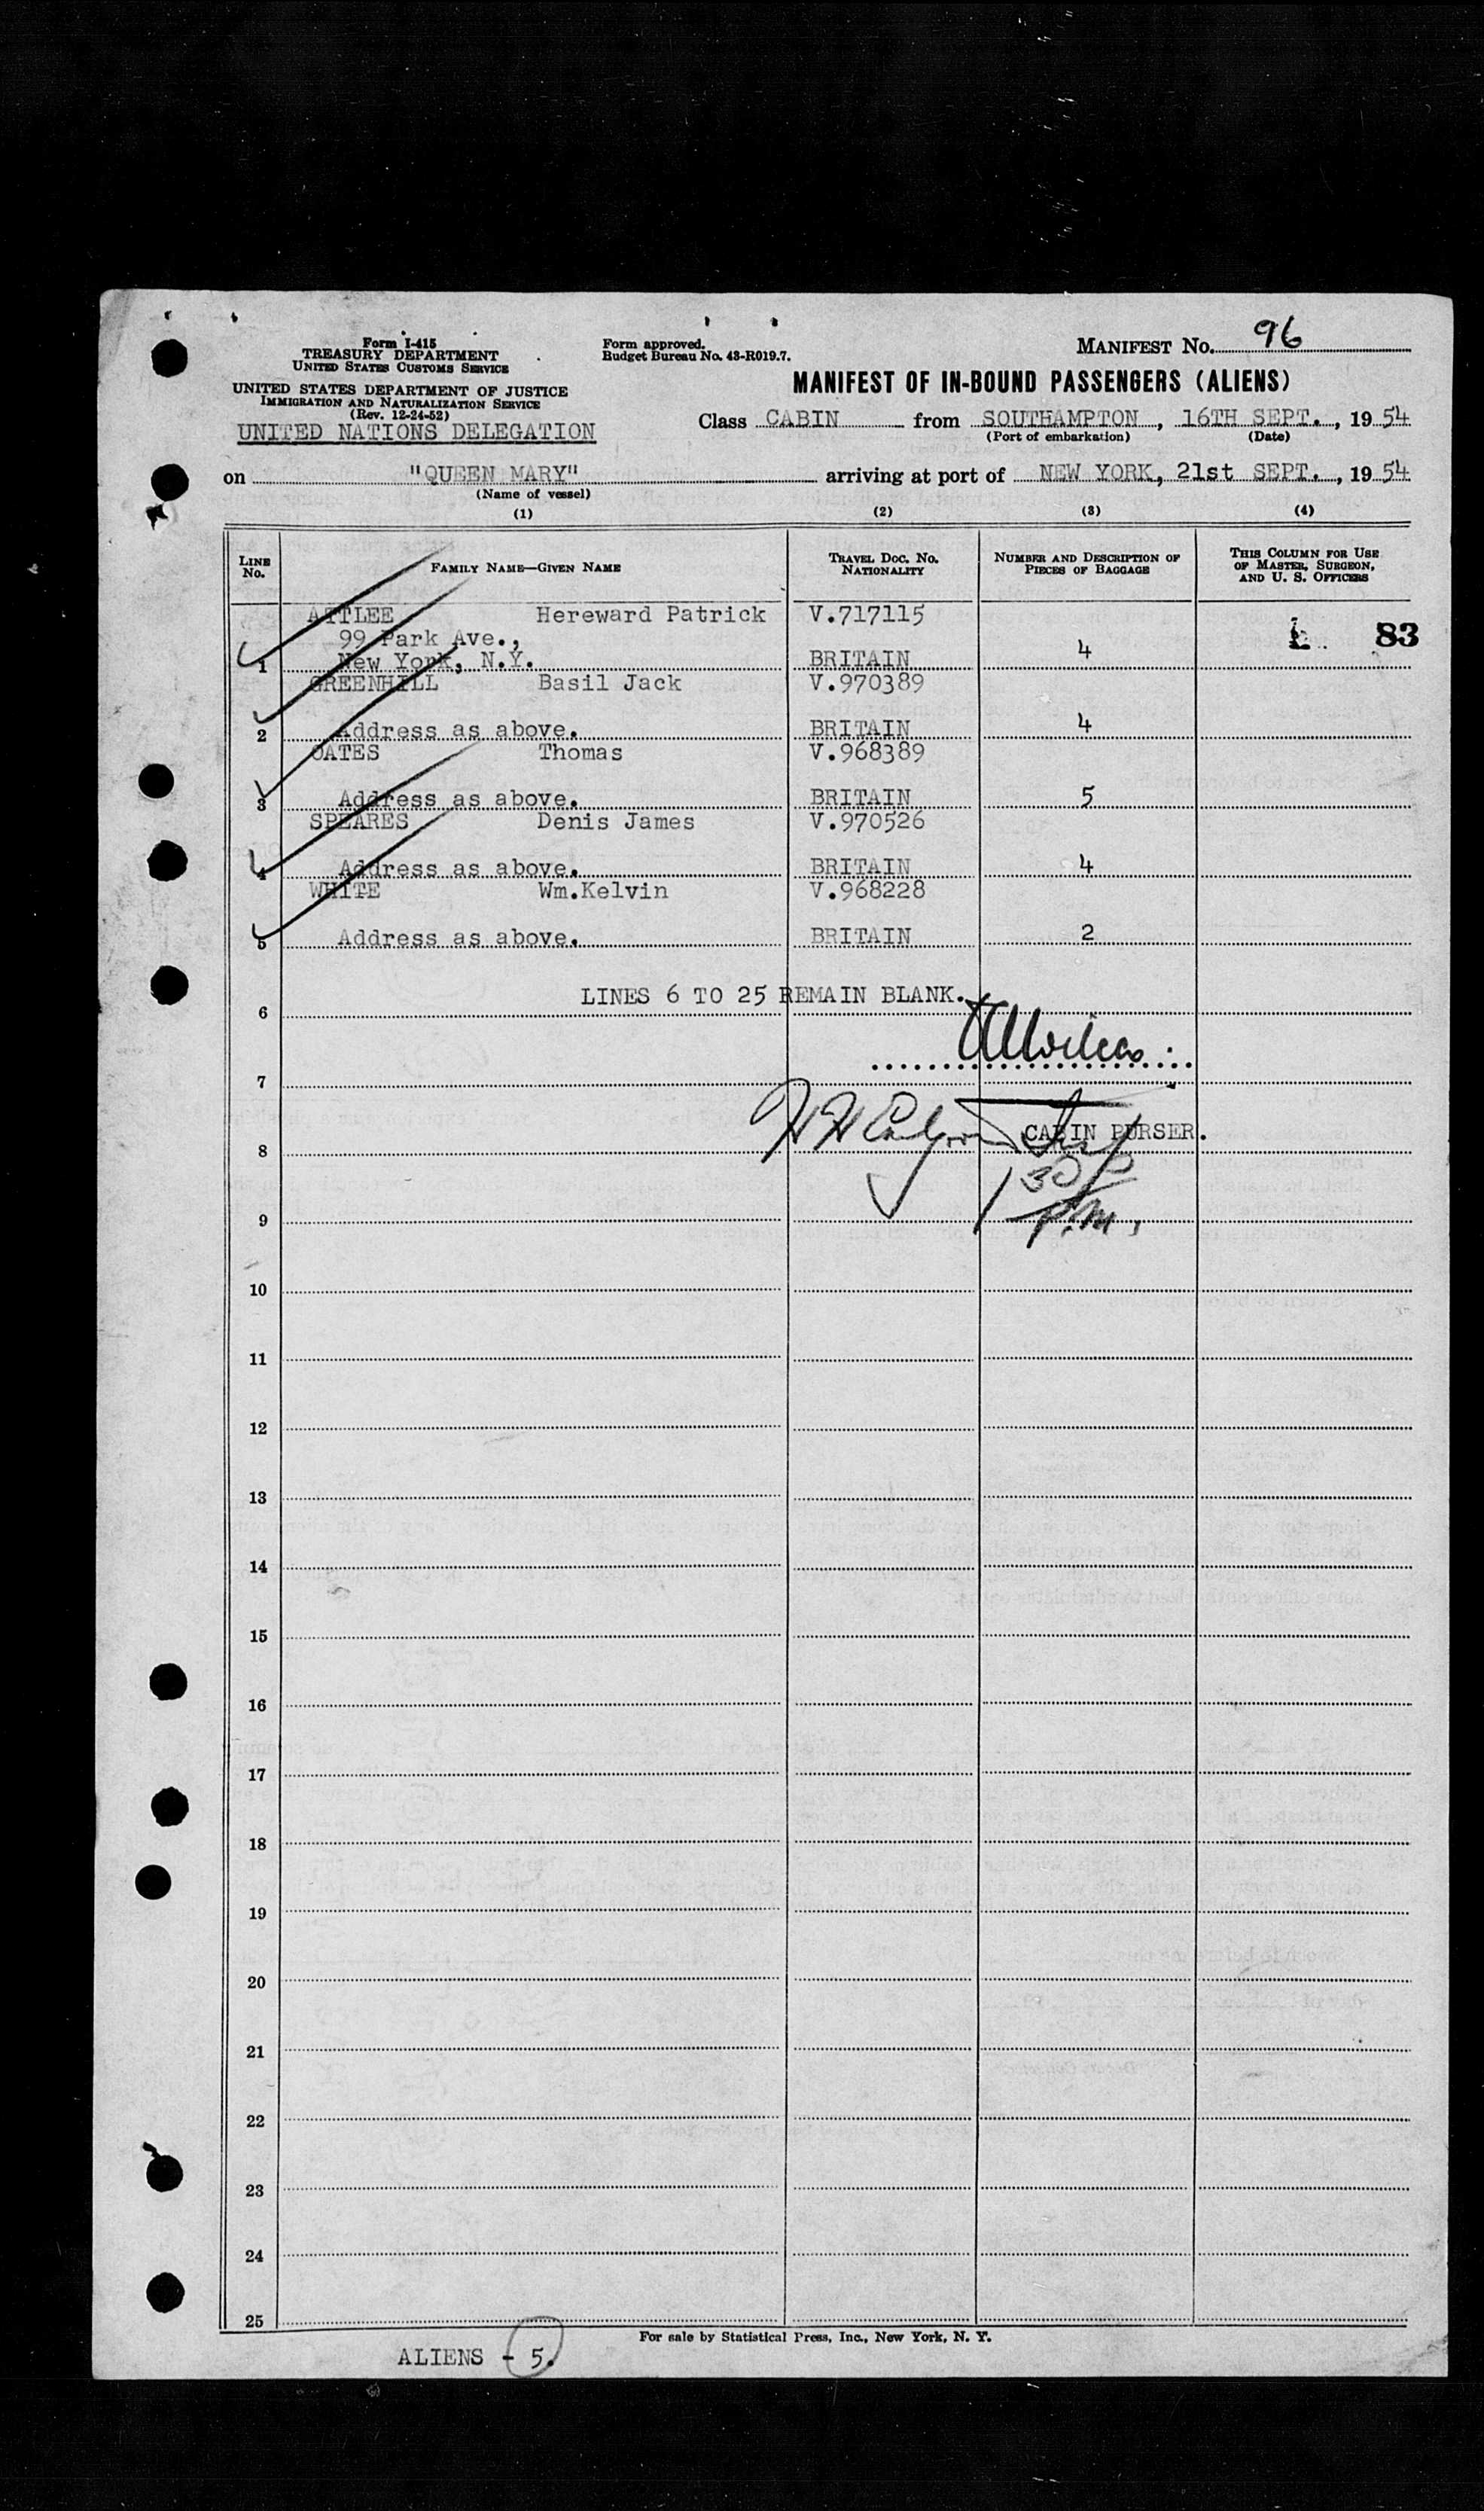 Form I-415
TREASURY DEPARTMENT
UNITED STATES CUSTOMS SERVICE
UNITED STATES DEPARTMENT OF JUSTICE
IMMIGRATION AND NATURALIZATION SERVICE
(Rev. 12-24-52)
UNITED NATIONS DELEGATION
Form approved.
Budget Bureau No. 43-R019.7.
MANIFEST NO. 96
MANIFEST OF IN-BOUND PASSENGERS (ALIENS)
Class CABIN from SOUTHAMPTON, 16TH SEPT., 1954
(Port of embarkation) (Date)
on "QUEEN MARY" arriving at port of NEW YORK, 21st SEPT., 1954
(Name of vessel)
(1) (2) (3) (4)
LINE NO. FAMILY NAME—GIVEN NAME TRAVEL DOC. NO. NATIONALITY NUMBER AND DESCRIPTION OF PIECES OF BAGGAGE THIS COLUMN FOR USE OF MASTER, SURGEON, AND U. S. OFFICERS
ATTLEE Hereward Patrick V.717115
99 Park Ave., 4 83
1 New York, N.Y. BRITAIN
GREENHILL Basil Jack V.970389
2 Address as above. BRITAIN 4
OATES Thomas V.968389
3 Address as above. BRITAIN 5
SPEARES Denis James V.970526
4 Address as above. BRITAIN 4
WHITE Wm.Kelvin V.968228
5 Address as above. BRITAIN 2
LINES 6 TO 25 REMAIN BLANK.
6
7
CABIN PURSER.
8
130 P
P.M.
9
10
11
12
13
14
15
16
17
18
19
20
21
22
23
24
25
For sale by Statistical Press, Inc., New York, N. Y.
ALIENS - 5.